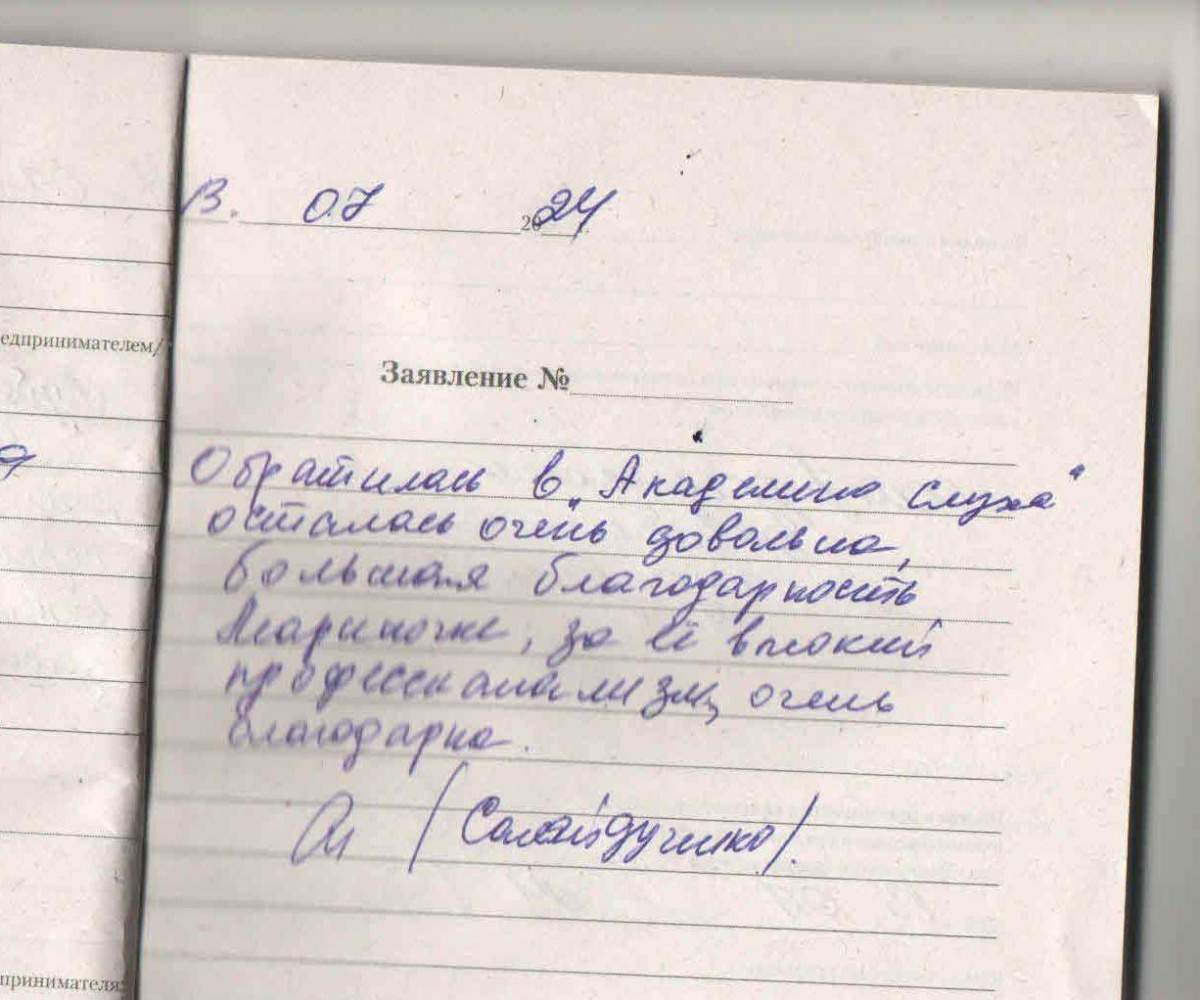 13. 07 2024
едпринимателем/
Заявление №
я
Обратилась в „Академию слуха"
осталась очень довольна,
большая благодарность
Мариночке, за её высокий
профессионализм, очень
благодарна.
принимателя